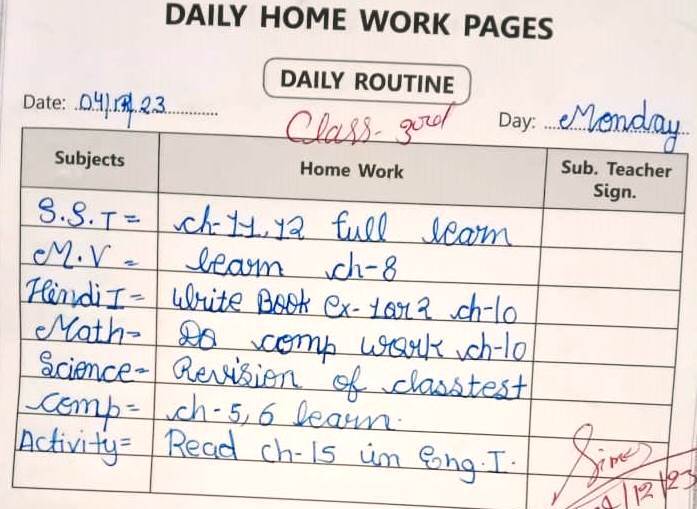 DAILY HOME WORK PAGES
DAILY ROUTINE
Date: 04/12/23
Class- 3rd
Day: Monday
Subjects Home Work Sub. Teacher Sign.
S.S.T = ch-11, 12 full learn
M.V = learn ch-8
Hindi I = Write Book ex- 1 or 2 ch-10
Math- Do comp work ch-10
Science- Revision of classtest
comp= ch-5, 6 learn.
Activity= Read ch-15 in Eng. I.
/12/23